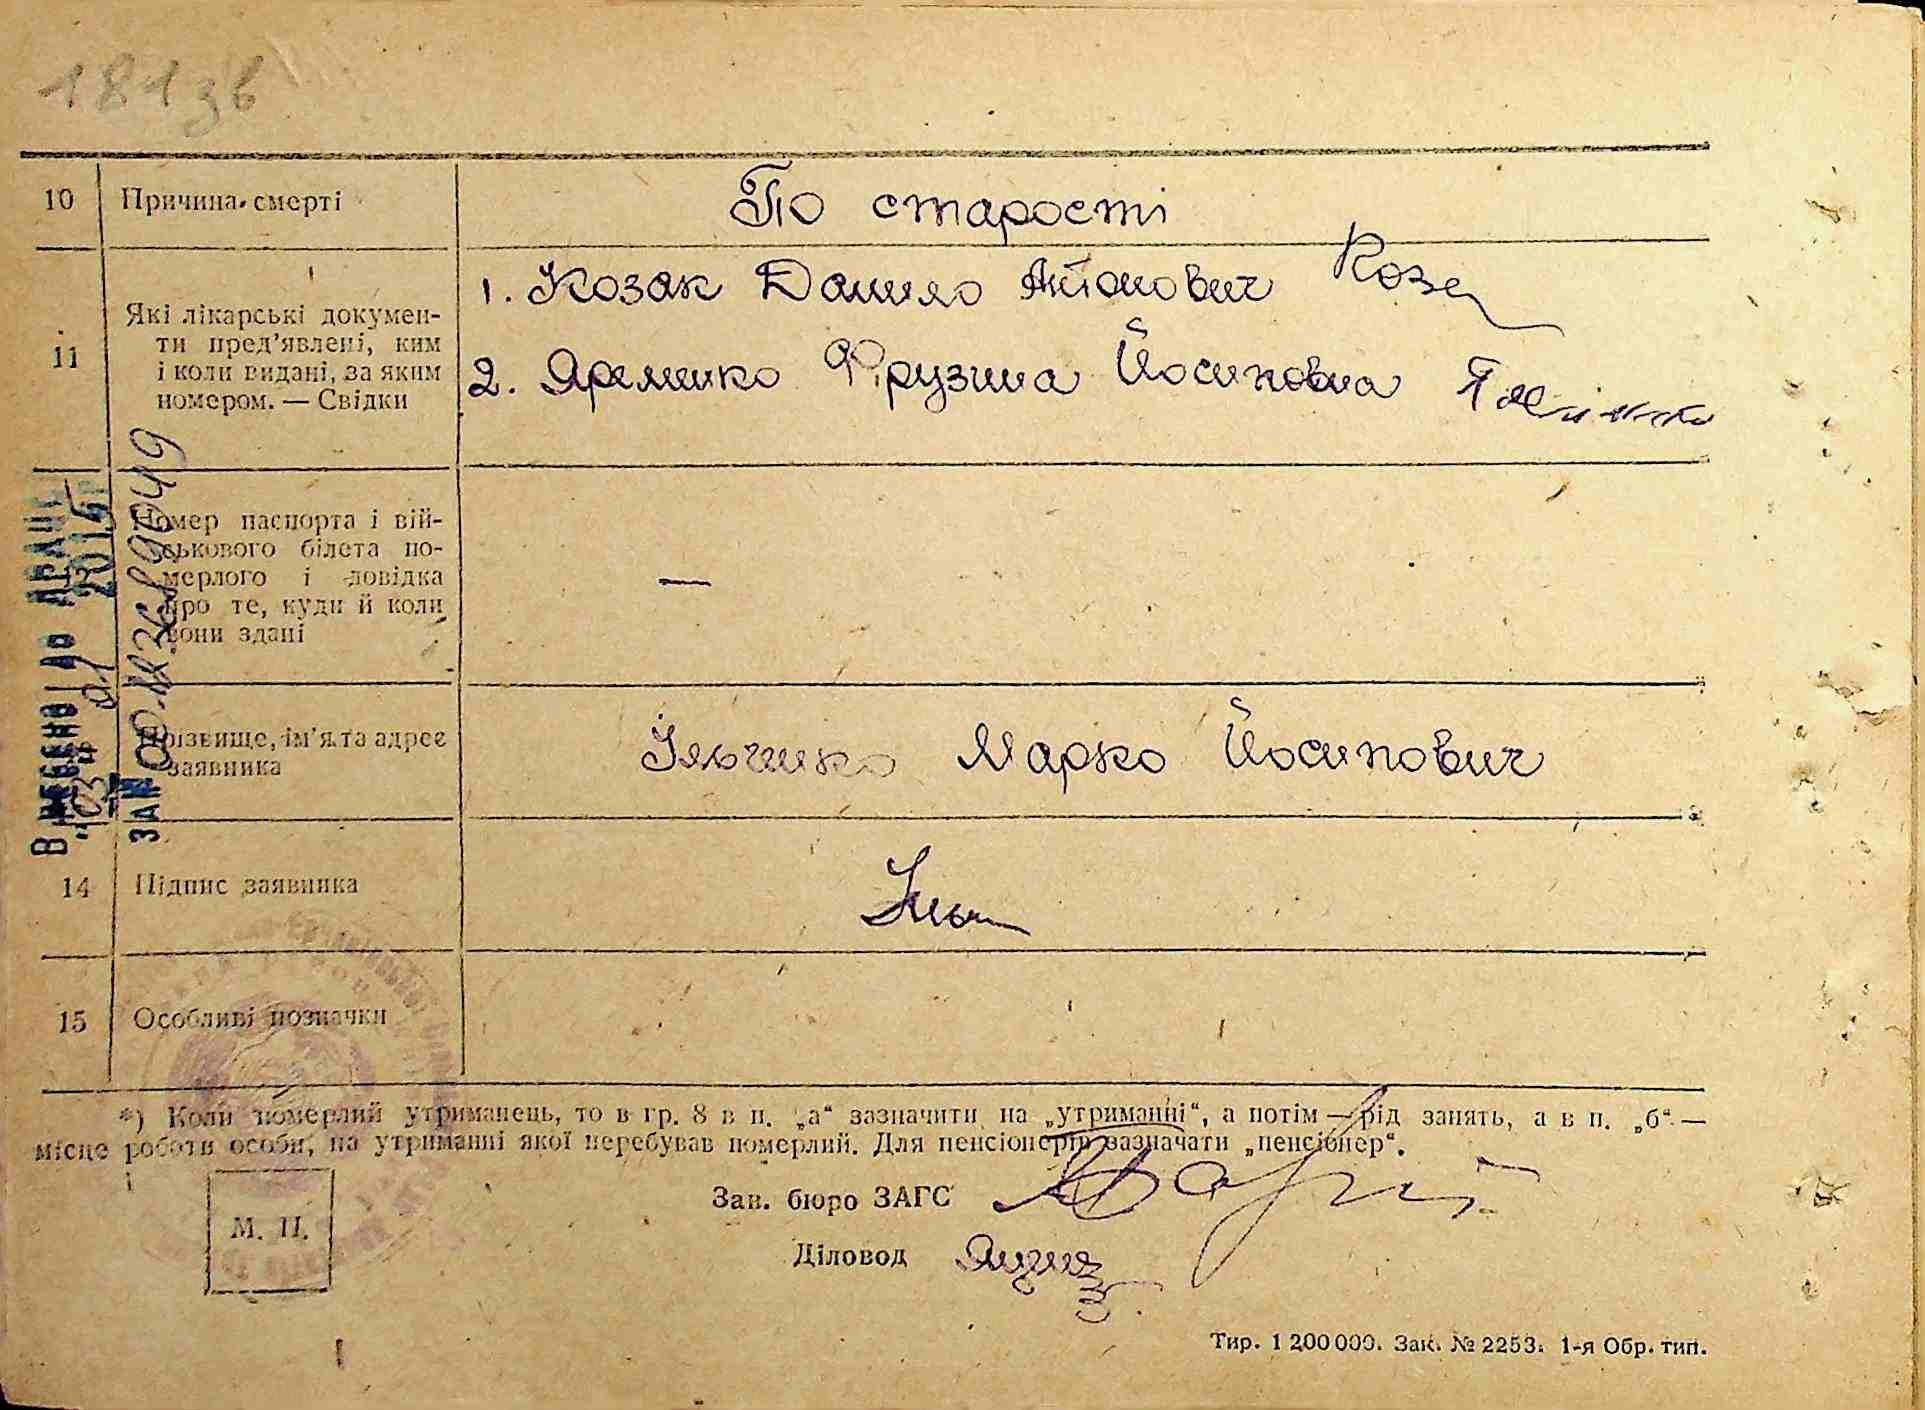 181зв
10 Причина смерті По старості
11 Які лікарські докумен-
ти пред'явлені, ким
і коли видані, за яким
номером. — Свідки
1. Козак Данило Антонович Коза
2. Яремчко Фрузина Йосиповна
Номер паспорта і вій-
ськового білета по-
мерлого і довідка
про те, куди й коли
вони здані
—
Прізвище, ім'я та адрес
заявника
Ільчишко Марко Йосипович
14 Підпис заявника
15 Особливі позначки
ВНЕСЕНО ДО ДРАЦС
"03" 01 2015
ЗА №
*) Коли померлий утриманець, то в гр. 8 в п. „а“ зазначити на „утриманні“, а потім — рід занять, а в п. „б“ —
місце роботи особи, на утриманні якої перебував померлий. Для пенсіонерів зазначати „пенсіонер“.
Зав. бюро ЗАГС
М. П.
Діловод
Тир. 1 200 000. Зак. № 2253. 1-я Обр. тип.